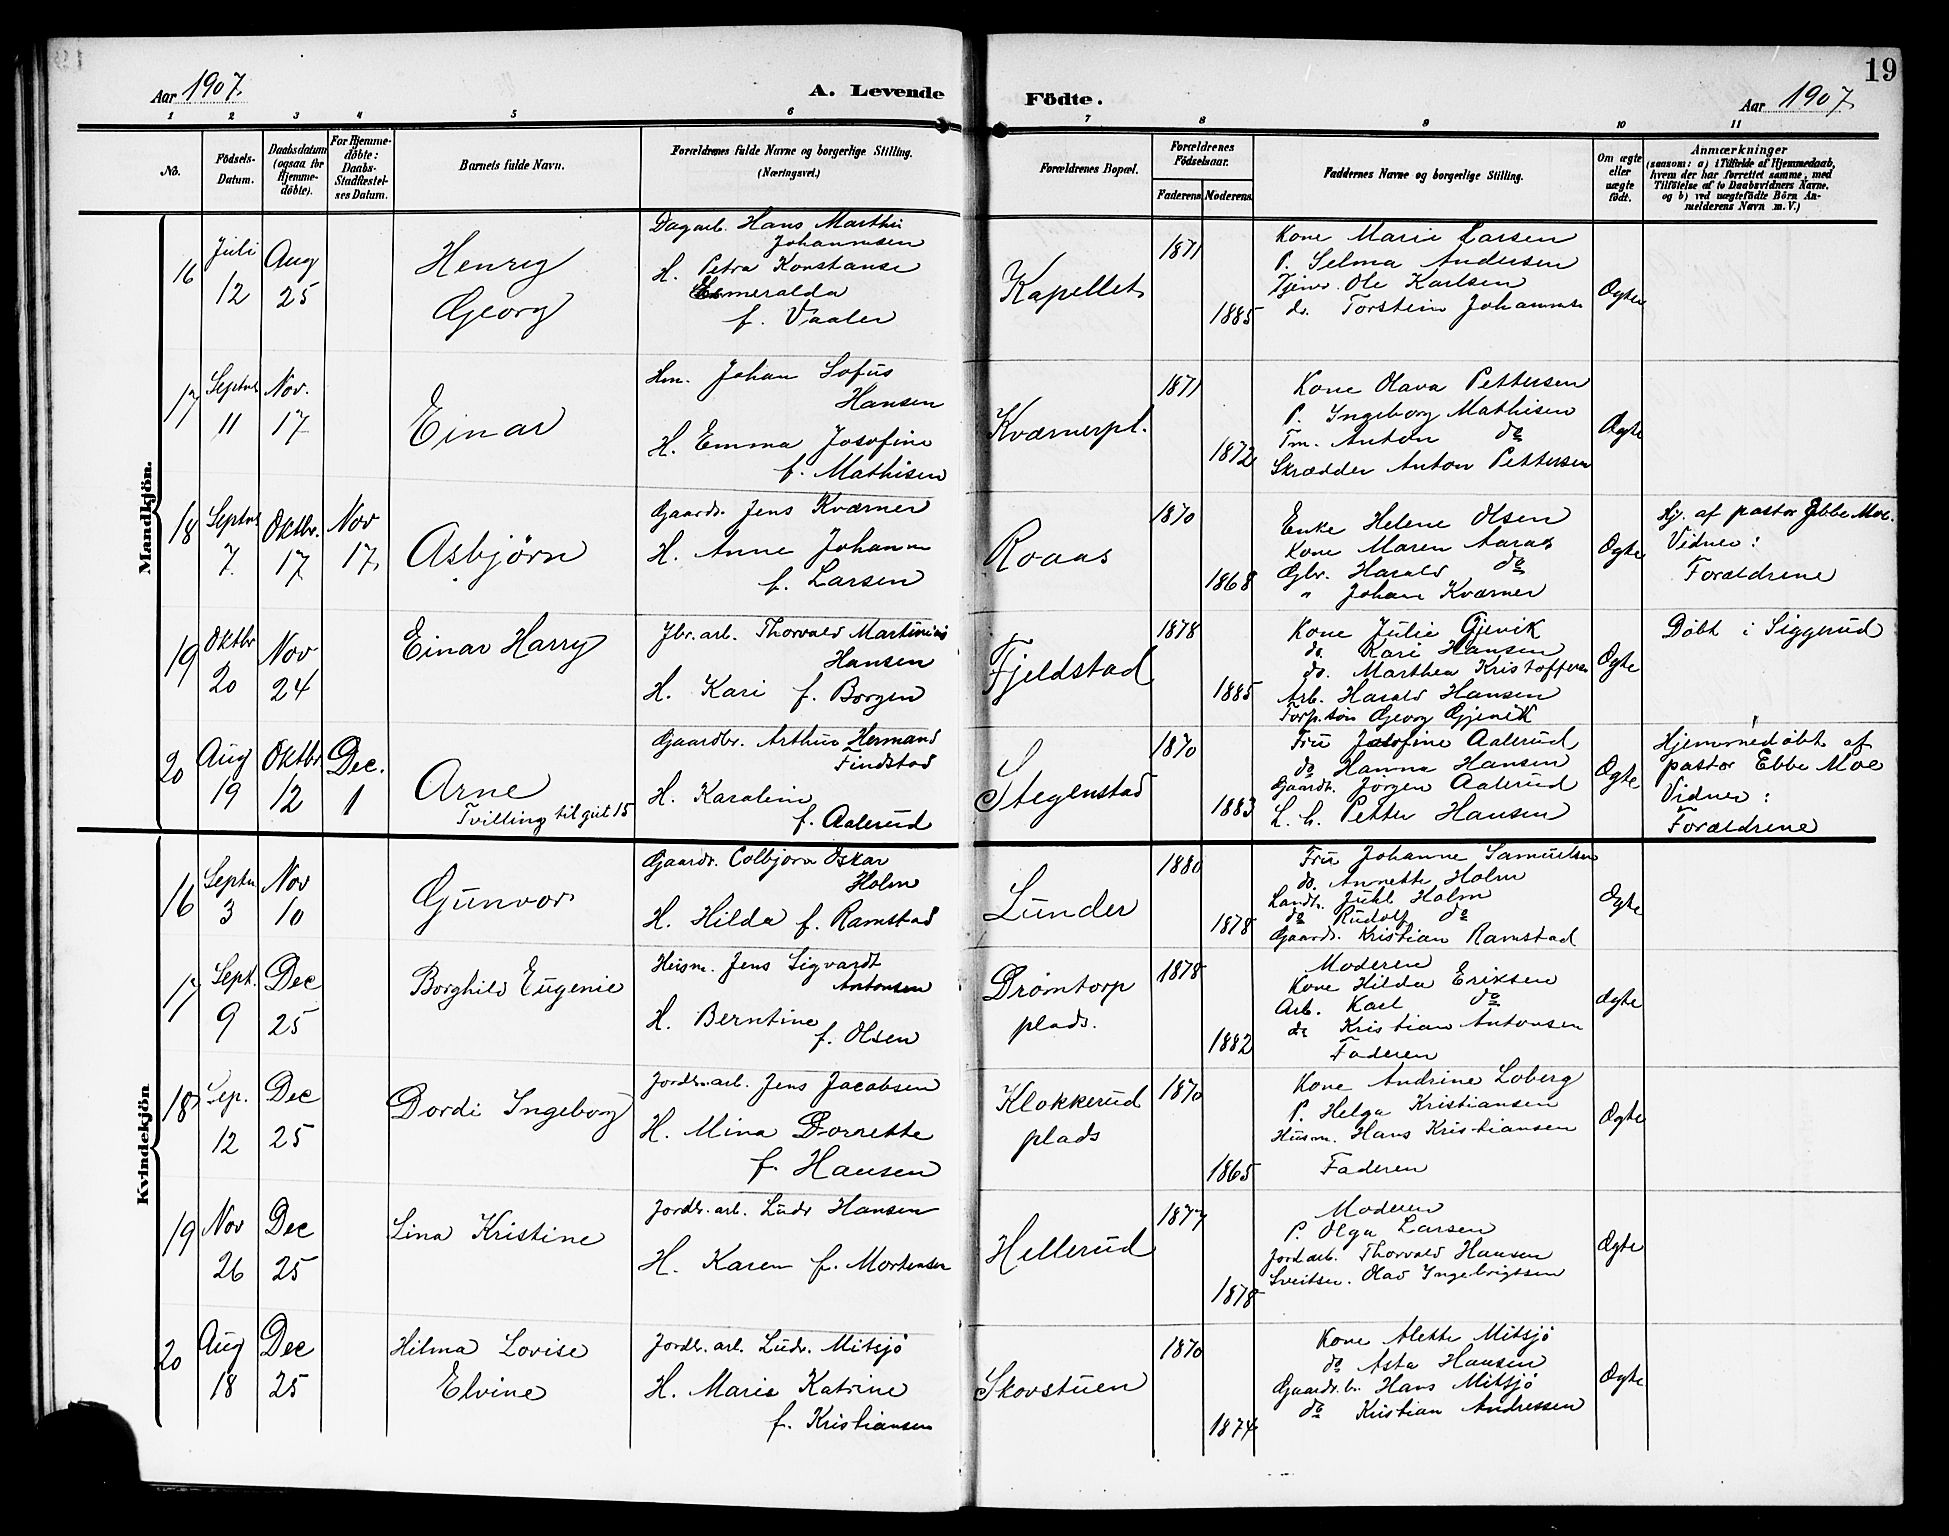 Aar 1907.
A. Levende
Födte.
Aar 1907.
19
1 2 3 4 5 6 7 8 9 10 11
No.
Födsels-
Datum.
Daabsdatum
(ogsaa for
Hjemme-
döbte).
For Hjemme-
döbte:
Daabs-
Stadfæstel-
ses Datum.
Barnets fulde Navn.
Forældrenes fulde Navne og borgerlige Stilling.
(Næringsvei.)
Forældrenes Bopæl.
Forældrenes
Födselsaar.
Faderens
Moderens
Faddernes Navne og borgerlige Stilling.
Om ægte
eller
uægte
födt.
Anmærkninger
(saasom: a) i Tilfælde af Hjemmedaab,
hvem der har forrettet samme, med
Tilföielse af to Daabsvidners Navne,
og b) ved uægtefödte Börn An-
melderens Navn m. V.)
Mandkjön.
16
Juli
12
Aug
25
Henry
Georg
Dagarb. Hans Marthin
Johannsen
H. Petra Konstanse
Esmeralda
f. Vaaler
Kapellet
1871
1885
Kone Marie Larsen
P. Selma Andersen
Tjener. Ole Karlsen
do. Torstein Johanns
Ægte
17
Septbr
11
Nov.
17
Einar
Hm. Johan Sofus
Hansen
H. Emma Josofine
f. Mathisen
Kværnerpl.
1871
1872
Kone Olava Pettersen
P. Ingeborg Mathisen
Tm. Anton do
Skrædder Anton Pettersen
Ægte
18
Septbr
7
Oktbr.
17
Nov
17
Asbjørn
Gaardr. Jens Kværner
H. Anne Johanne
f. Larsen
Roaas
1870
1868
Enke Helene Olsen
Kone Maren Aaraas
Gbr. Harald do
" Johan Kværner
Ægte
Hj. af pastor Ebbe Moe.
Vidner:
Forældrene
19
Oktbr
20
Nov
24
Einar Harry
Jbr. arb. Thorvald Martinius
Hansen
H. Kari f. Borgen
Fjeldstad
1878
1885
Kone Julie Gjevik
do. Kari Hansen
do. Marthea Kristoffersen
Arb. Harald Hansen
Forp. søn Georg Gjevik
Ægte
Døbt i Siggerud
20
Aug
19
Oktbr
12
Dec.
1
Arne
Tvilling til gut 15
Gaardbr. Arthur Hermand
Findstad
H. Karoline
f. Aalerud
Stegenstad
1870
1883
Fru Josofine Aalerud
do Hanna Hansen
Gaardbr. Jørgen Aalerud
L. h. Petter Hansen
Ægte
Hjemmedøbt af
pastor Ebbe Moe
Vidner:
Forældrene
Kvindekjön
16
Septbr
3
Nov
10
Gunvor
Gaardr. Colbjørn Oskar
Holm
H. Hilda f. Ramstad
Lunder
1880
1878
Fru Johanne Samuelsen
do. Annette Holm
Landh. Juhl Holm
do Rudolf do
Gaardr. Kristian Ramstad
Ægte
17
Sept.
9
Dec
25
Borghild Eugenie
Husm. Jens Sigvardt
Antonsen
H. Berntine
f. Olsen
Drømtorp
plads.
1878
1882
Moderen
Kone Hilda Eriksen
Arb. Karl do
do Kristian Antonsen
Faderen
Ægte
18
Sep.
12
Dec
25
Dordi Ingeborg
Jordbr. arb. Jens Jacobsen
H. Mina Dorrette
f. Hansen
Klokkerud
plads
1870
1865
Kone Andrine Loberg
P. Helga Kristiansen
Husm. Hans Kristiansen
Faderen
Ægte
19
Nov
26
Dec
25
Lina Kristine
Jordbr. arb. Ludv Hansen
H. Karen f. Mortensen
Hellerud
1877
1878
Moderen
P. Olga Larsen
Jordarb. Thorvald Hansen
Sveitser. Olav Ingebrigtsen
Ægte
20
Aug
18
Dec
25
Hilma Lovise
Elvine
Jordbr. arb. Ludv. Mitsjø
H. Marie Katrine
f. Kristiansen
Skovstuen
1870
1874
Kone Alette Mitsjø
do Asta Hansen
Gaardr. br. Hans Mitsjø
do Kristian Andressen
Ægte